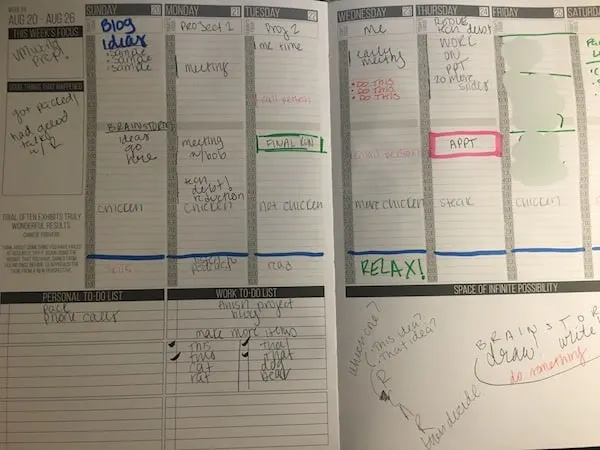 AUG 20 - AUG 26
THIS WEEK'S FOCUS
GOOD THINGS THAT HAPPENED
got packed!
had good
talk
w/ R
TRIAL OFTEN EXHIBITS TRULY
WONDERFUL RESULTS.
SUNDAY 20
Blog
ideas
• sample
• sample
• sample
BRAINSTORM
ideas
go
here
chicken
MONDAY 21
Project 1
meeting
meeting
w/bob
tech
debt!
reduction
chicken
podcast
TUESDAY 22
Proj 2
me time
call person
FINAL RUN
not chicken
read
WEDNESDAY 23
me
early
meeting
• DO THIS
• DO THIS
• DO THIS
email person
more chicken
RELAX!
THURSDAY 24
tech debt
WORK
ON
PPT
20 more
slides
APPT
steak
chicken
SATURDAY
PERSONAL TO-DO LIST
pack
phone calls
WORK TO-DO LIST
project
blog
make more items
this
this
cat
rat
that
that
dog
bear
SPACE OF INFINITE POSSIBILITY
which one?
(This idea?
That idea?
then decide
BRAINSTOR
draw write
do something